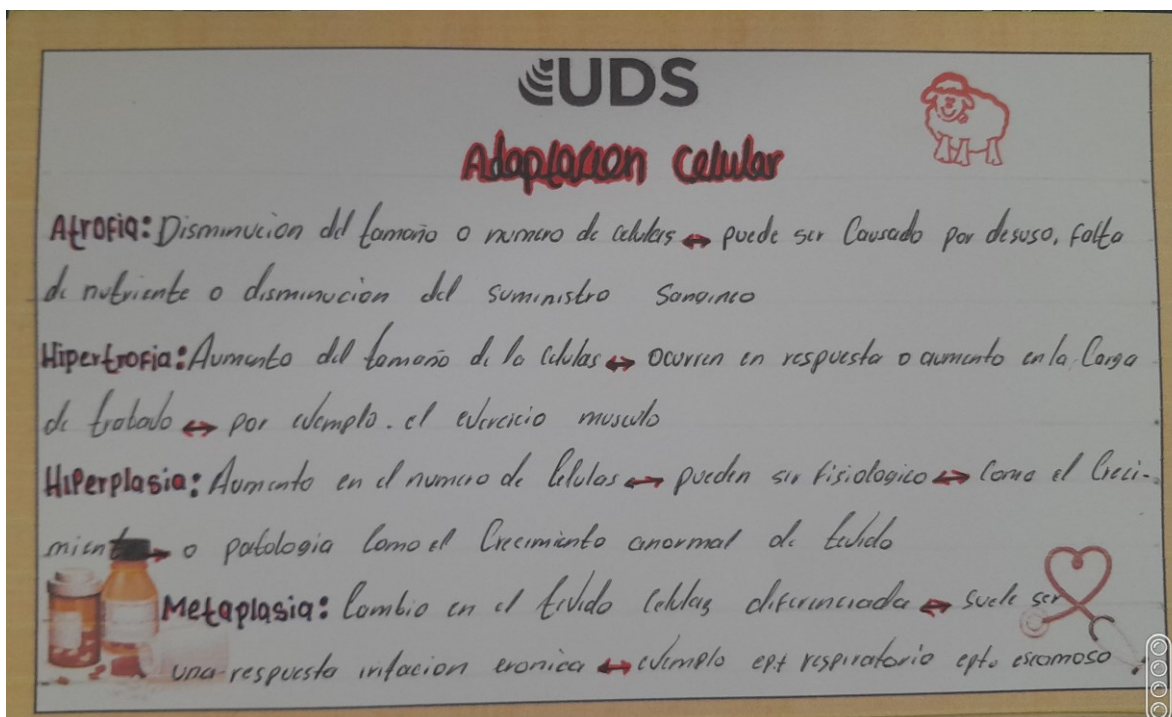 UDS
Adaptacion Celular
Atrofia: Disminucion del tamaño o numero de celulas ↔ puede ser Causado por desuso, falta
de nutriente o disminucion del suministro Sangineo
Hipertrofia: Aumento del tamaño de la Celulas ↔ ocurren en respuesta o aumento en la Carga
de trabajo ↔ por ejemplo. el ejercicio musculo
Hiperplasia: Aumento en el numero de Celulas ↔ pueden ser fisiologico ↔ Como el Creci-
miento → o patologia Como el Crecimiento anormal de tejido
Metaplasia: Cambio en el tejido Celulas diferenciada ↔ suele ser
una respuesta iritacion cronica ↔ ejemplo ept respiratorio epto escamoso